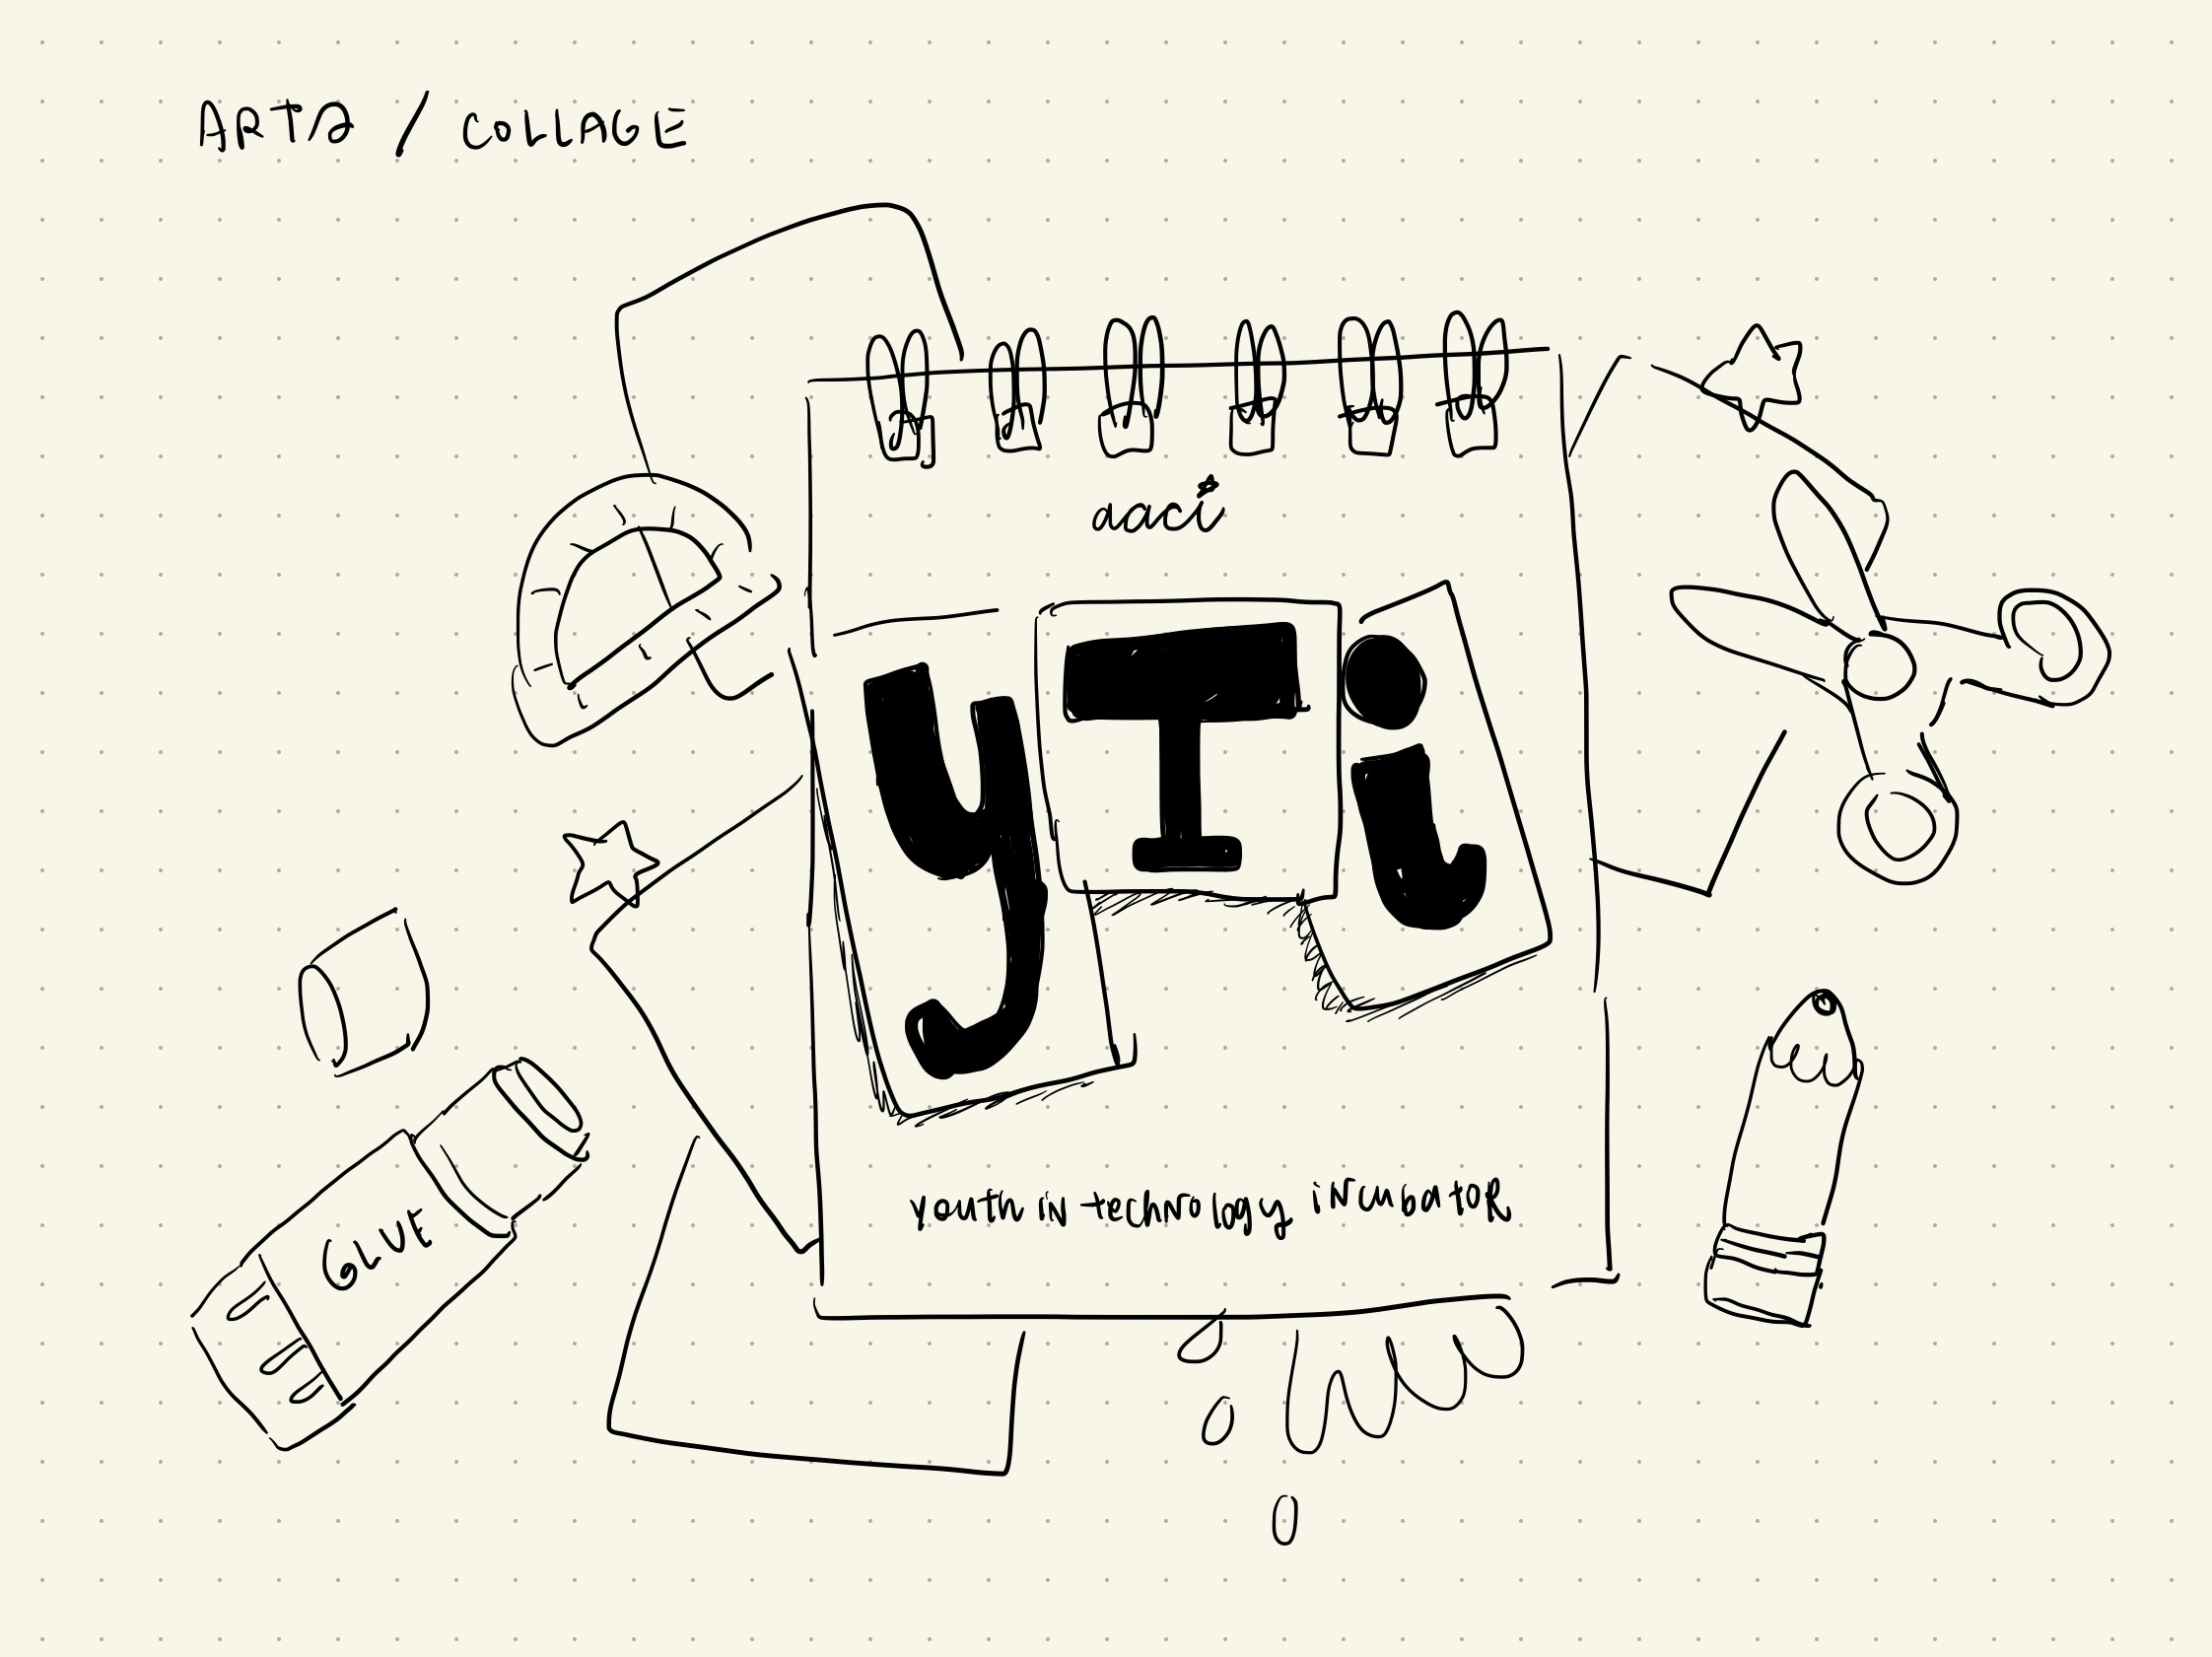 ARTS / COLLAGE
aaci
yTi
youth in technology incubator
GLUE